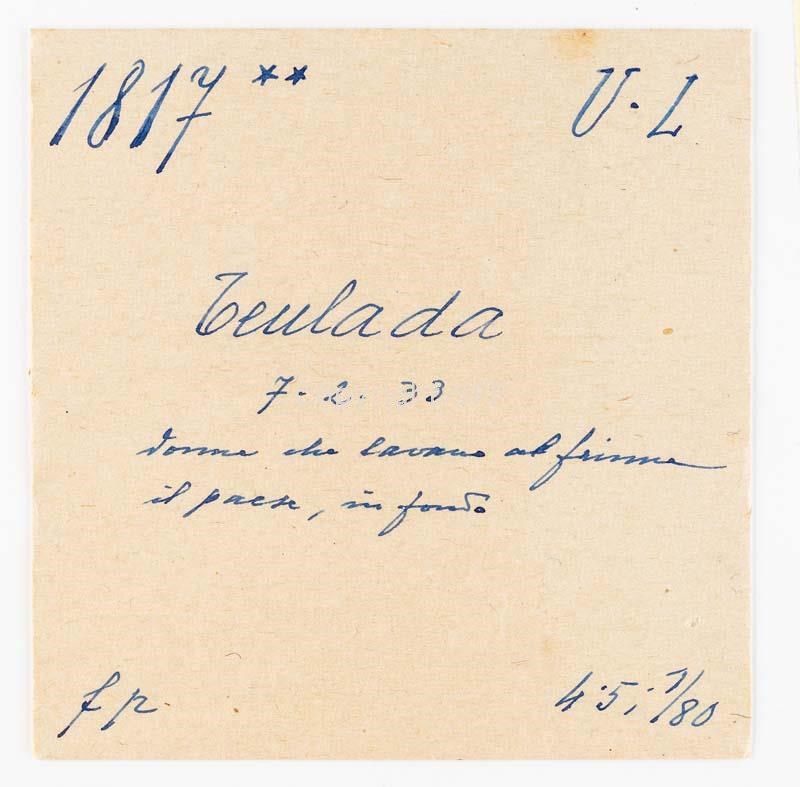 1817 ** U. L
Teulada
7-2-33
donne che lavano al fiume
il paese, in fondo
f p.
4.5; 1/80